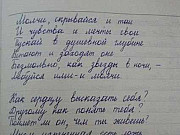 Молчи, скрывайся и таи
И чувства и мечты свои
Пускай в душевной глубине
Встают и заходят оне
Безмолвно, как звезды в ночи, –
Любуйся ими – и молчи.
Как сердцу высказать себя?
Другому как понять тебя?
Поймёт ли он, чем ты живёшь?